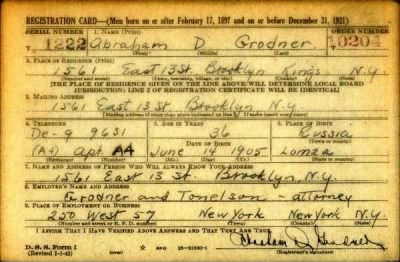 REGISTRATION CARD—(Men born on or after February 17, 1897 and on or before December 31, 1921)
SERIAL NUMBER 1. NAME (Print) ORDER NUMBER
1222 Abraham D Grodner 10204
(First) (Middle) (Last)
2. PLACE OF RESIDENCE (Print)
1561 East 13 St. Brooklyn Kings N.Y.
(Number and street) (Town, township, village, or city) (County) (State)
[THE PLACE OF RESIDENCE GIVEN ON THE LINE ABOVE WILL DETERMINE LOCAL BOARD
JURISDICTION; LINE 2 OF REGISTRATION CERTIFICATE WILL BE IDENTICAL]
3. MAILING ADDRESS
1561 East 13 St. Brooklyn N.Y.
[Mailing address if other than place indicated on line 2. If same insert word same]
4. TELEPHONE 5. AGE IN YEARS 6. PLACE OF BIRTH
De-9 9631 36 Russia
DATE OF BIRTH
(A4) Apt. A4 June 14 1905 Lomza
7. NAME AND ADDRESS OF PERSON WHO WILL ALWAYS KNOW YOUR ADDRESS
1561 East 13 St Brooklyn, N.Y.
8. EMPLOYER'S NAME AND ADDRESS
Grodner and Tonelson - attorney
9. PLACE OF EMPLOYMENT OR BUSINESS
250 West 57 New York New York N.Y.
(Number and street or R. F. D. number) (Town) (County) (State)
I AFFIRM THAT I HAVE VERIFIED ABOVE ANSWERS AND THAT THEY ARE TRUE.
D. S. S. Form 1
(Revised 1-1-42)